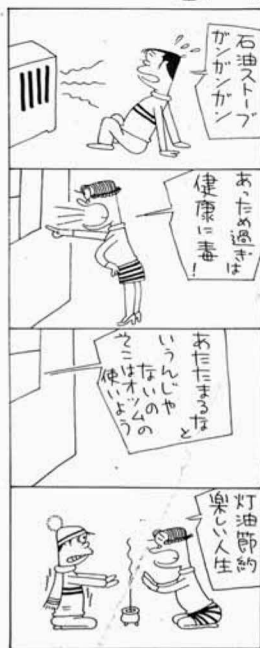 石油ストーブ
ガンガンガン
あっため過ぎは
健康に毒！
あたたまるなと
いうんじゃ
ないの
そこはオツムの
使いよう
灯油節約
楽しい人生